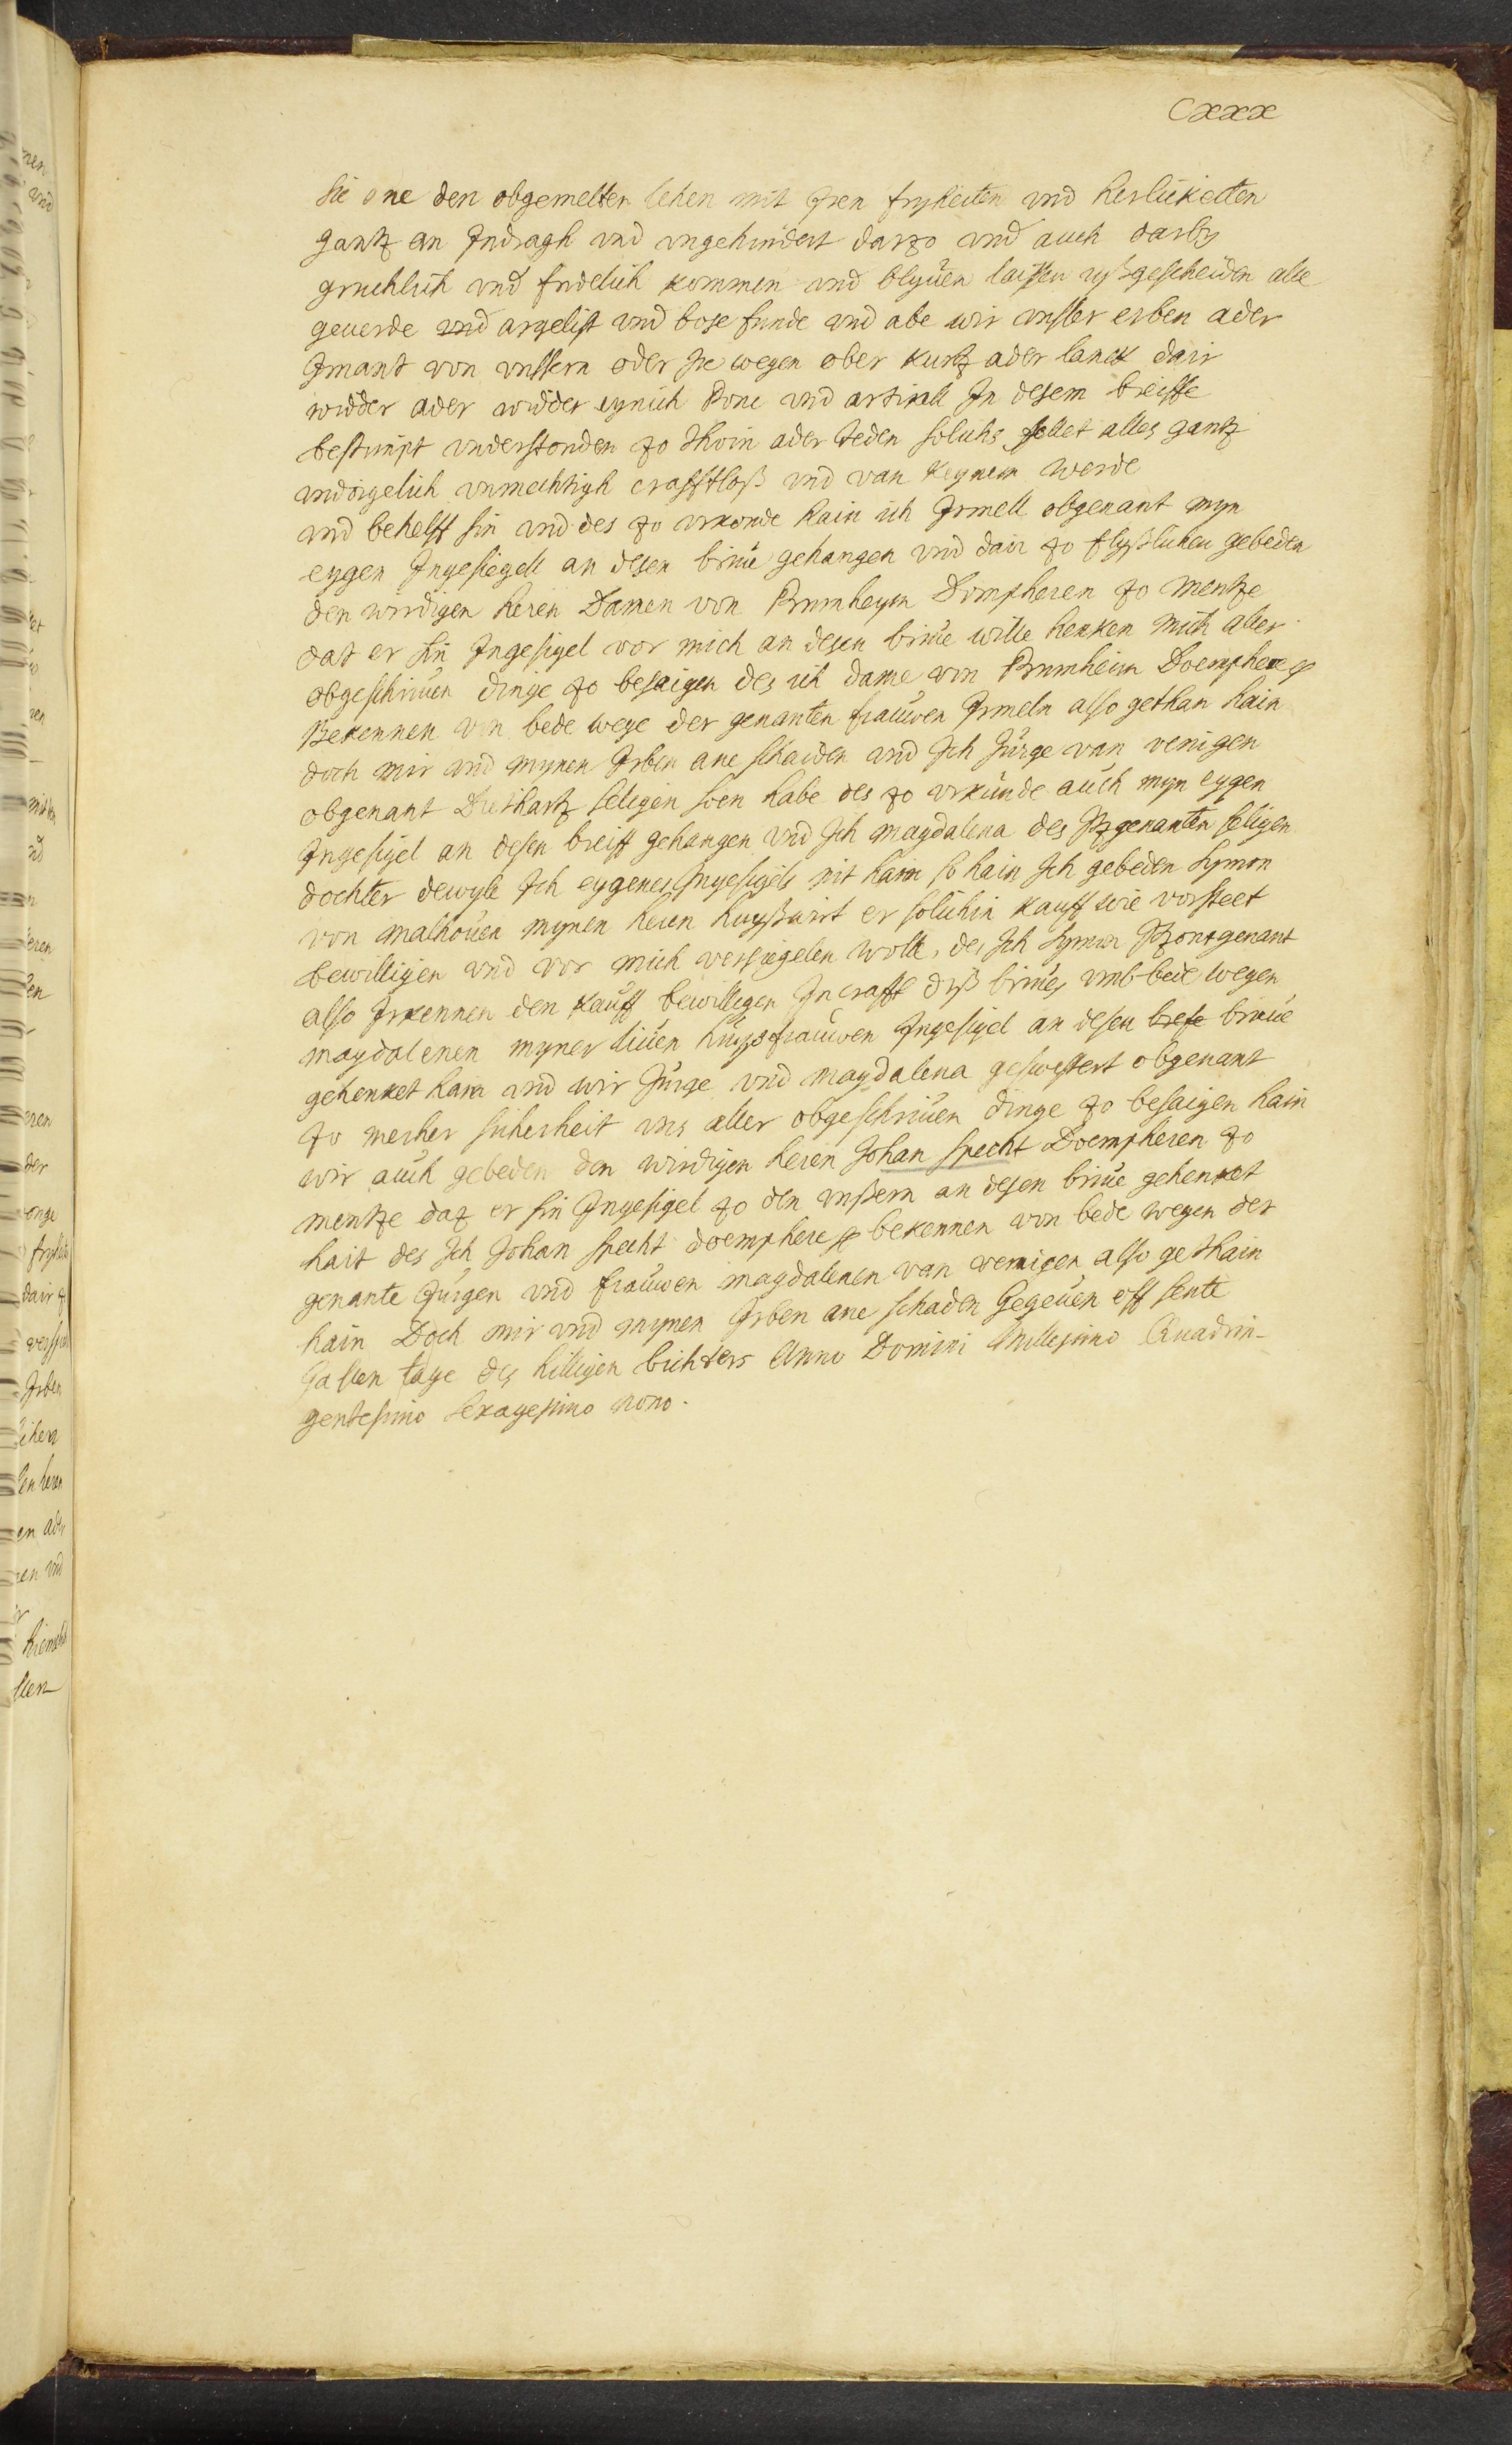 Cxxx
sie one den obgemelten lehen mit Jren fryheiten vnd herlicketten
gantz an Indragh vnd vngehindert darzo vnd auch darby
gruchlich vnd fridelich kommen vnd blyuen laissen ußgescheiden alle
geuerde vnd argelist vnd bose funde vnd abe wir vnsser erben ader
Jmant von vnssern oder Jre wegen ober kurtz ader lanck dair
widder ader widder eynich pone vnd artikell Jn desem breiffe
bestimpt vnderstonden zo thoin ader teden soluhs sollet alles gantz
vndogelich vnmechtigh crafftloß vnd van keynem werde
vnd behelff sin vnd des zo vrkonde hain ich Jrmell obgenant myn
eygen Jngesiegell an desen briue gehangen vnd dair zo flyßlichen gebeden
den wirdigen heren Damen von Prumheym Dompheren zo Mentze
dat er sin Jngesigel vor mich an desen briue wille henken mich aller
obgeschriuen dinge zo besaigen des ich dame von Prumheim Doemphere
Bekennen von bede wege der genanten frauwen Jrmeln also gethan hain
doch mir vnd mynen Jrben ane schaiden vnd Jch Jurge van venigen
obgenant Diethartz seligen soen habe des zo vrkunde auch myn eygen
Jngesigel an desen breiff gehangen vnd Jch magdalena des Jtzgenanten seligen
dochter dewyle Jch eygenes Jngesigels nit hain so hain Jch gebeden Symon
von Malhouen mynen heren huyßwirt er solichin kauff wie vorsteet
bewilligen vnd vor mich versiegelen wolle, des Jch Symon Itzontgenant
also Jrkennen den Kauff bewilligen Jn crafft diß briues vmb bede wegen
magdalenen myner liuen huyßfrauwen Jngesigel an desen brefe briue
gehenket hain vnd wir Jurge vnd Magdalena geswestert obgenant
zo merher sicherheit vns aller obgeschriuen dinge zo besaigen hain
wir auch gebeden den wirdigen heren Johan Specht Doempheren zo
mentze daz er sin Jngesigel zo den vnßern an desen briue gehenket
hait des Jch Johan Specht doemphere bekennen von bede wegen der
genante Jurgen vnd frauwen magdalenen van venigen also gethain
hain Doch mir vnd mynen Jrben ane schaden Gegeuen off sente
Gallen tage des hilligen bichters Anno Domini Millesimo Quadrin-
gentesimo sexagesimo nono.